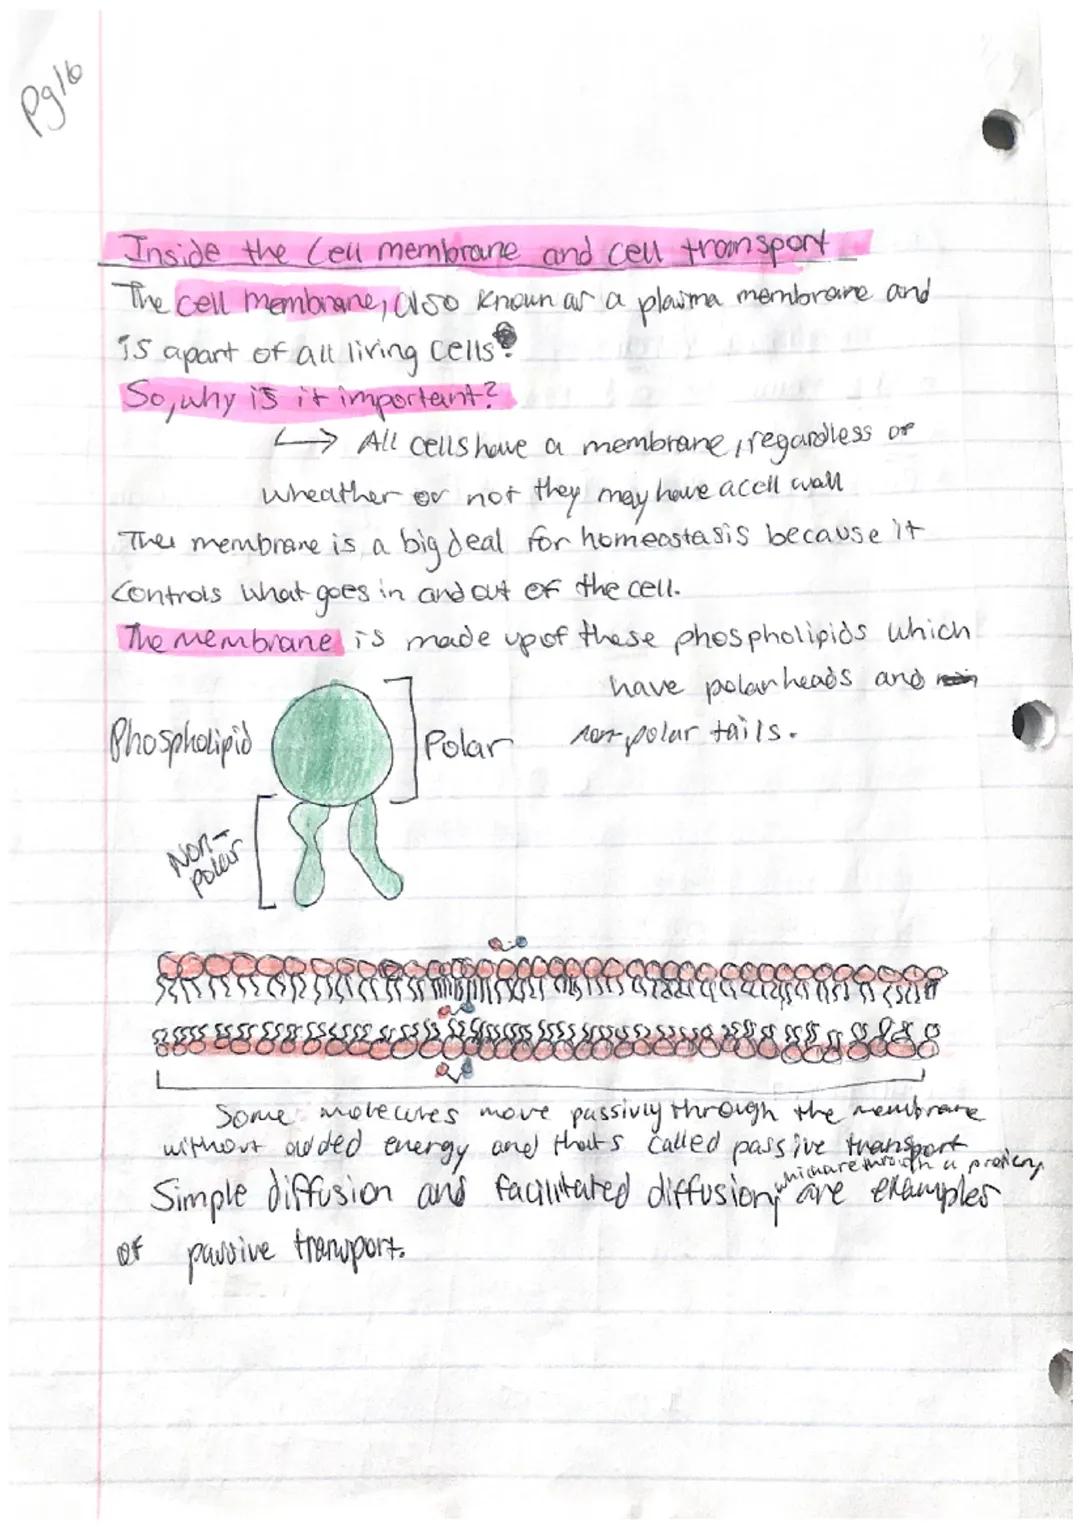 Pg16
Inside the Cell membrane and cell transport
The cell membrane, also known as a plasma membrane and
is apart of all living cells.
So, why is it important?
↳ All cells have a membrane, regardless of
wheather or not they may have a cell wall
The membrane is a big deal for homeostasis because it
controls what goes in and out of the cell.
The membrane is made up of these phospholipids which
have polar heads and
non-polar tails.
Phospholipid
Polar
Non-
polar
Some molecules move passivly through the membrane
without added energy and that's called passive transport
which are through a protien,
Simple diffusion and facilitated diffusion, are examples
of passive transport.